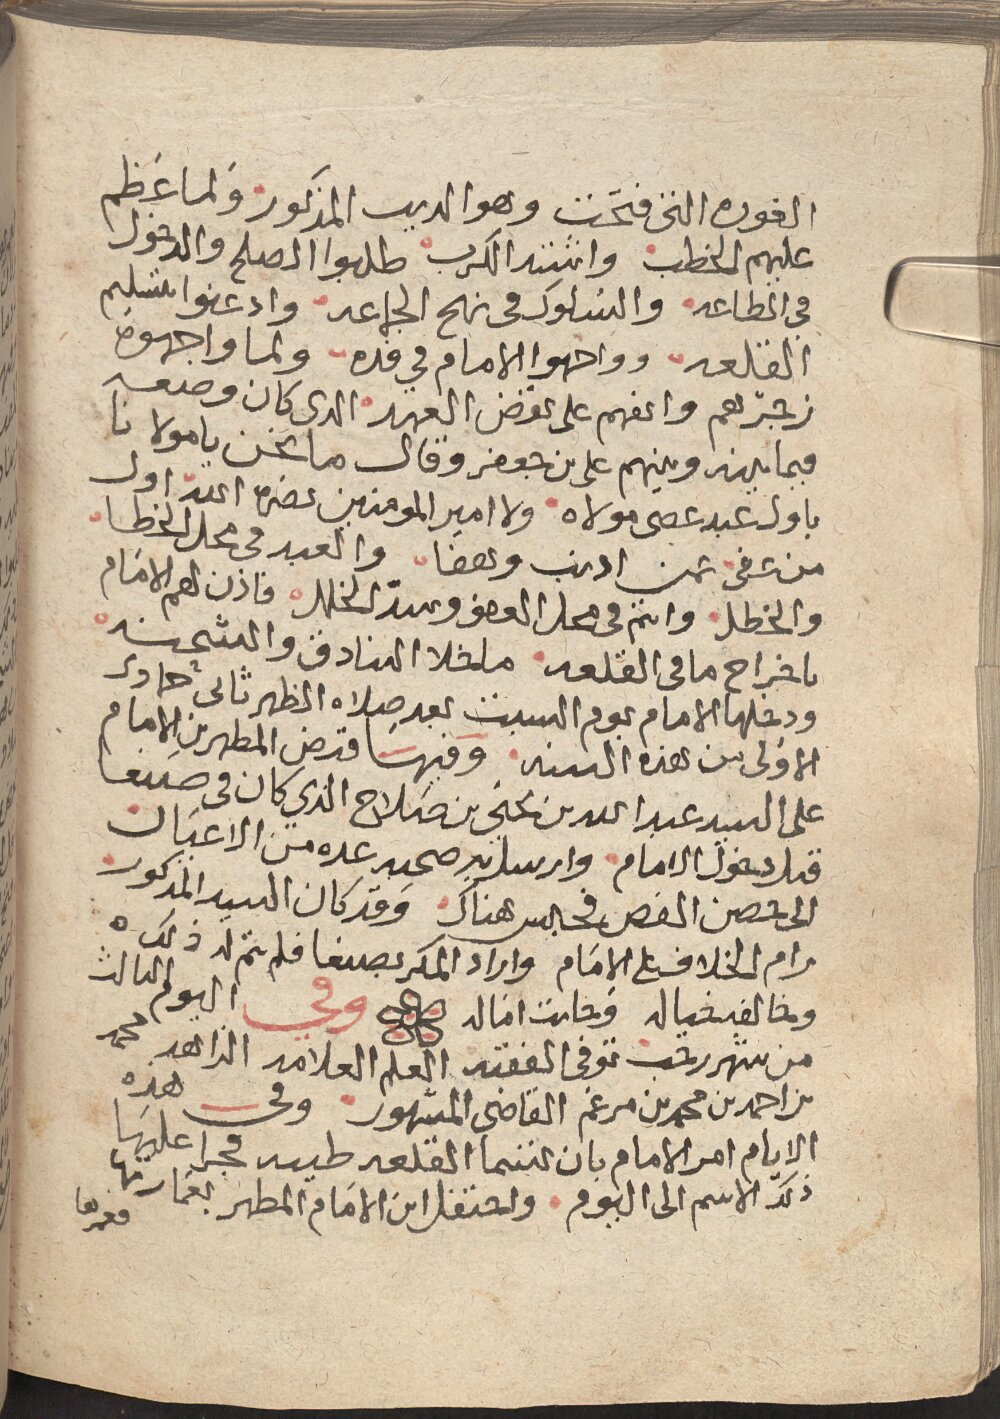 الغوره التي فتحت وهو الديب المذكور ولما عظم
عليهم الخطب واشتد الكرب طلبوا الصلح والدخول
في الطاعه والسلوك في نهج الجماعه واذعنوا بتسليم
القلعه وواجهوا الامام في فده ولما واجهوه
زجرهم وانفهم على نقض العهد الذي كان وضعه
فيما بينه وبينهم على بن جعفر وقال ما نحن يا مولانا
باول عبد عصى مولاه ولا امير المومنين نضره الله اول
من عفى عمن اذنب وهفا والعبد في محل الخطا
والخطل وانتم في محل العفو وسد الخلل فاذن لهم الامام
باخراج ما في القلعه ماخلا البنادق والشحنه
ودخلها الامام يوم السبت بعد صلاه الظهر ثاني جمادى
الاولى من هذه السنه وفيها قبض المطهر بن الامام
على السيد عبد الله بن يحيى بن صلاح الذي كان في صنعا
قبل دخول الامام وارسل به صحبه عده من الاعيان
الى حصن الفص فحبس هناك وقد كان السيد المذكور
رام الخلاف على الامام واراد المكر بصنعا فلم يتم له ذلك
وخاب فيه خياله وخابت اماله وفي اليوم الثالث
من شهر رجب توفى الفقيه العلم العلامه الزاهد محمد
بن احمد بن محمد بن مرغم القاضي المشهور وفي هذه
الايام امر الامام بان تسما القلعه طيبه فجرا عليها
ذلك الاسم الى اليوم واحتفل ابن الامام المطهر بعمارتها
فعمرها